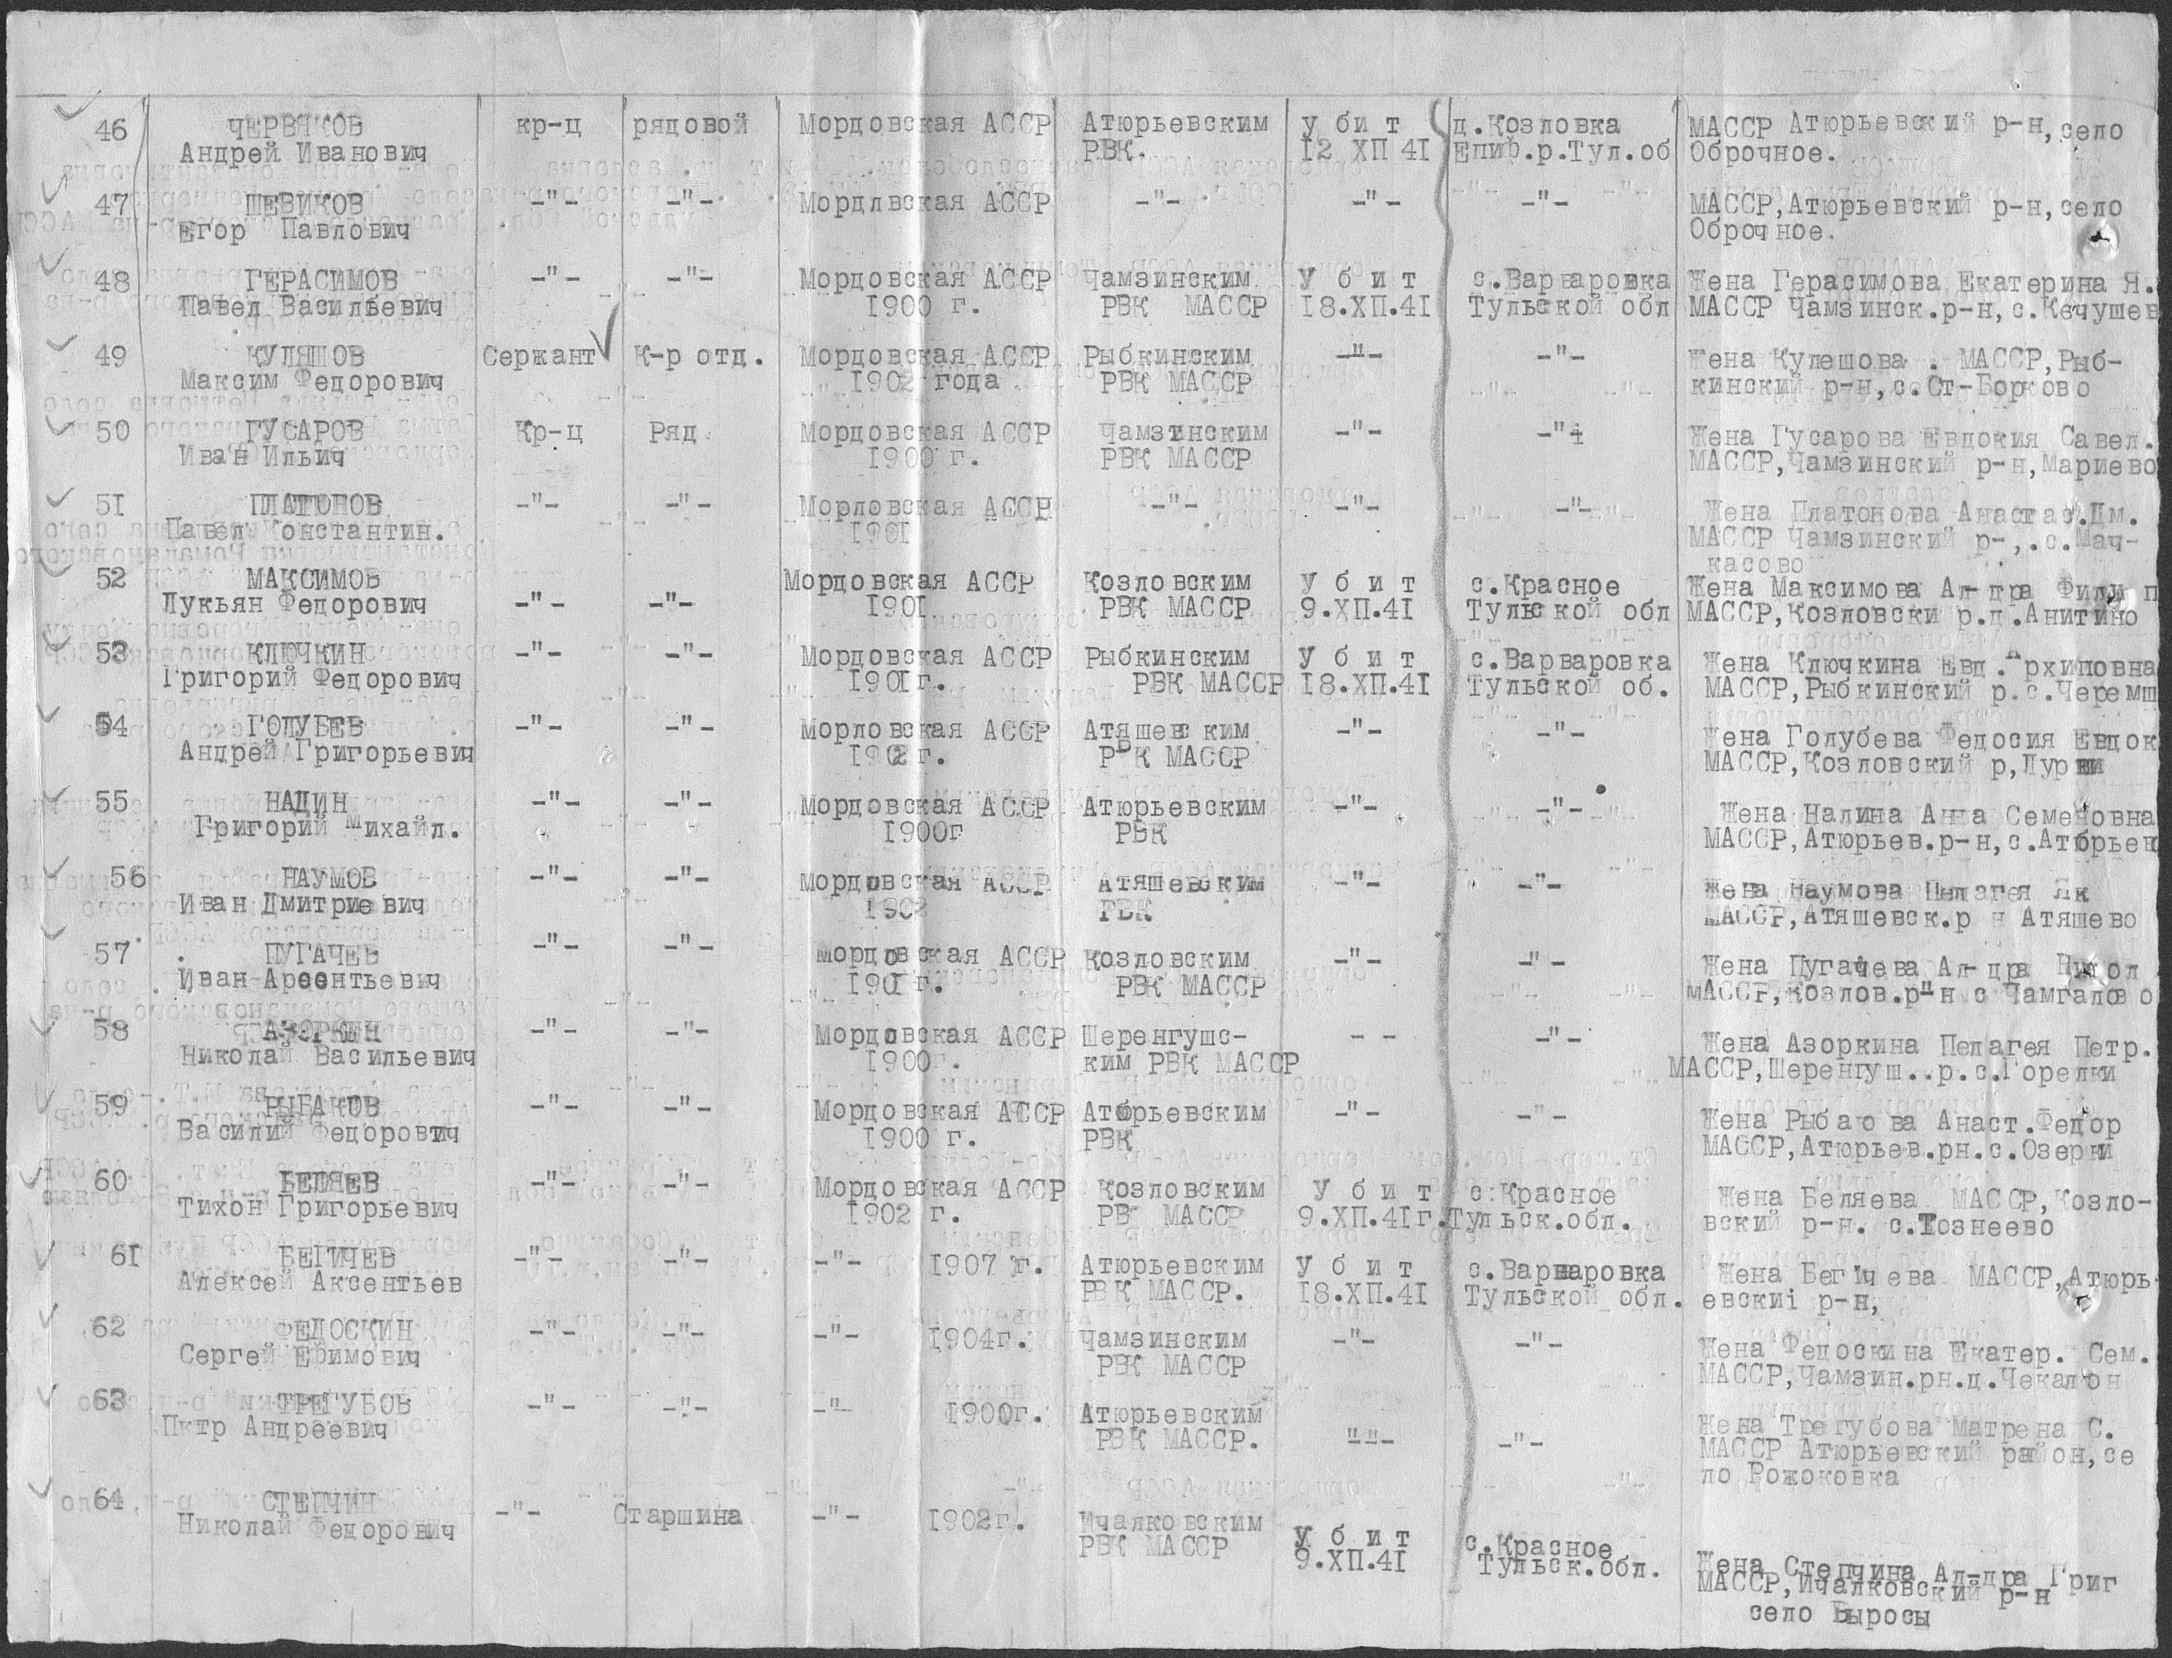 46 ЧЕРВЯКОВ кр-ц рядовой Мордовская АССР Атюрьевским у би т д.Козловка МАССР Атюрьевский р-н, село
Андрей Иванович РВК. 12 ХП 41 Епиф.р.Тул.об Оброчное.
47 ШЕВИКОВ -"- -"- Мордлвская АССР -"- -"- -"- МАССР,Атюрьевский р-н,село
Егор Павлович Оброчное.
48 ГЕРАСИМОВ -"- -"- Мордовская АССР Чамзинским У б и т с.Варваровка Жена Герасимова Екатерина Я.
Павел Васильевич 1900 г. РВК МАССР 18.ХП.41 Тульской обл МАССР Чамзинск.р-н,с.Кечушев
49 КУЛЯШОВ Сержант К-р отд. Мордовская АССР Рыбкинским -"- -"- Жена Кулешова . МАССР,Рыб-
Максим Федорович 1902 года РВК МАССР кинский р-н,с.Ст-Борково
50 ГУСАРОВ Кр-ц Ряд. Мордовская АССР Чамзинским -"- -"- Жена Гусарова Евдокия Савел.
Иван Ильич 1900 г. РВК МАССР МАССР,Чамзинский р-н,Мариево
51 ПЛАТОНОВ -"- -"- Морловская АССР -"- -"- -"- Жена Платонова Анастас.Дм.
Павел Константин. 1901 МАССР Чамзинский р-,.с.Мач-
касово
52 МАКСИМОВ Мордовская АССР Козловским У б и т с.Красное Жена Максимова Ал-дра Филип
Лукьян Федорович -"- -"- 1901 РВК МАССР 9.ХП.41 Тульской обл МАССР,Козловски р.д.Анитино
53 КЛЮЧКИН -"- -"- Мордовская АССР Рыбкинским У б и т с.Варваровка Жена Ключкина Евд.Архиповна
Григорий Федорович 1901г. РВК МАССР 18.ХП.41 Тульской об. МАССР,Рыбкинский р.с.Черемш
54 ГОЛУБЕВ -"- -"- Морловская АССР Атяшевским -"- -"- Жена Голубева Федосия Евдок
Андрей Григорьевич 1902г. РВК МАССР МАССР,Козловский р,
55 НАДИН -"- -"- Мордовская АССР Атюрьевским -"- -"- Жена Налина Анна Семеновна
Григорий Михайл. 1900г РВК МАССР,Атюрьев.р-н,с.Атюрьев
56 НАУМОВ -"- -"- мордовская АССР Атяшевским -"- -"- Жена Наумова Пелагея Як
Иван Дмитриевич 1902 РВК МАССР,Атяшевск.р н Атяшево
57 ПУГАЧЕВ -"- -"- мордовская АССР Козловским -"- -"- Жена Пугачева Ал-дра Никол
Иван Арсентьевич 1901г. РВК МАССР МАССР,Козлов.р-н с Чамгалово
58 АЗОРКИН -"- -"- Мордовская АССР Шеренгушс- - - -"- Жена Азоркина Пелагея Петр.
Николай Васильевич 1900г. ким РВК МАССР МАССР,Шеренгуш..р.с.Горелки
59 РЫБАКОВ -"- -"- Мордовская АССР Атюрьевским -"- -"- Жена Рыбакова Анаст.Федор
Василий Федорович 1900 г. РВК МАССР,Атюрьев.рн.с.Озерки
60 БЕЛЯЕВ -"- -"- Мордовская АССР Козловским У б и т с.Красное Жена Беляева МАССР,Козло-
Тихон Григорьевич 1902 г. РВ МАССР 9.ХП.41г.Тульск.обл. вский р-н. с.Тознеево
61 БЕГИЧЕВ -"- -"- -"- 1907 г. Атюрьевским У б и т с.Варваровка Жена Бегичева МАССР,Атюрь-
Алексей Аксентьев РВК МАССР. 18.ХП.41 Тульской обл. евскиi р-н,
62 ФЕДОСКИН -"- -"- -"- 1904г. Чамзинским -"- -"- Жена Федоскина Екатер. Сем.
Сергей Ефимович РВК МАССР МАССР,Чамзин.рн.д.Чекалон
63 ТРЕГУБОВ -"- -"- -"- 1900г. Атюрьевским Жена Трегубова Матрена С.
Петр Андреевич РВК МАССР. -"- -"- МАССР Атюрьевский район,се
ло Рожоковка
64 СТЕПЧИН -"- Старшина -"- 1902г. Ичалковским
Николай Федорович РВК МАССР У б и т с.Красное
9.ХП.41 Тульск.обл. Жена Степчина Ал-дра Григ
МАССР,Ичалковский р-н
село Выросы